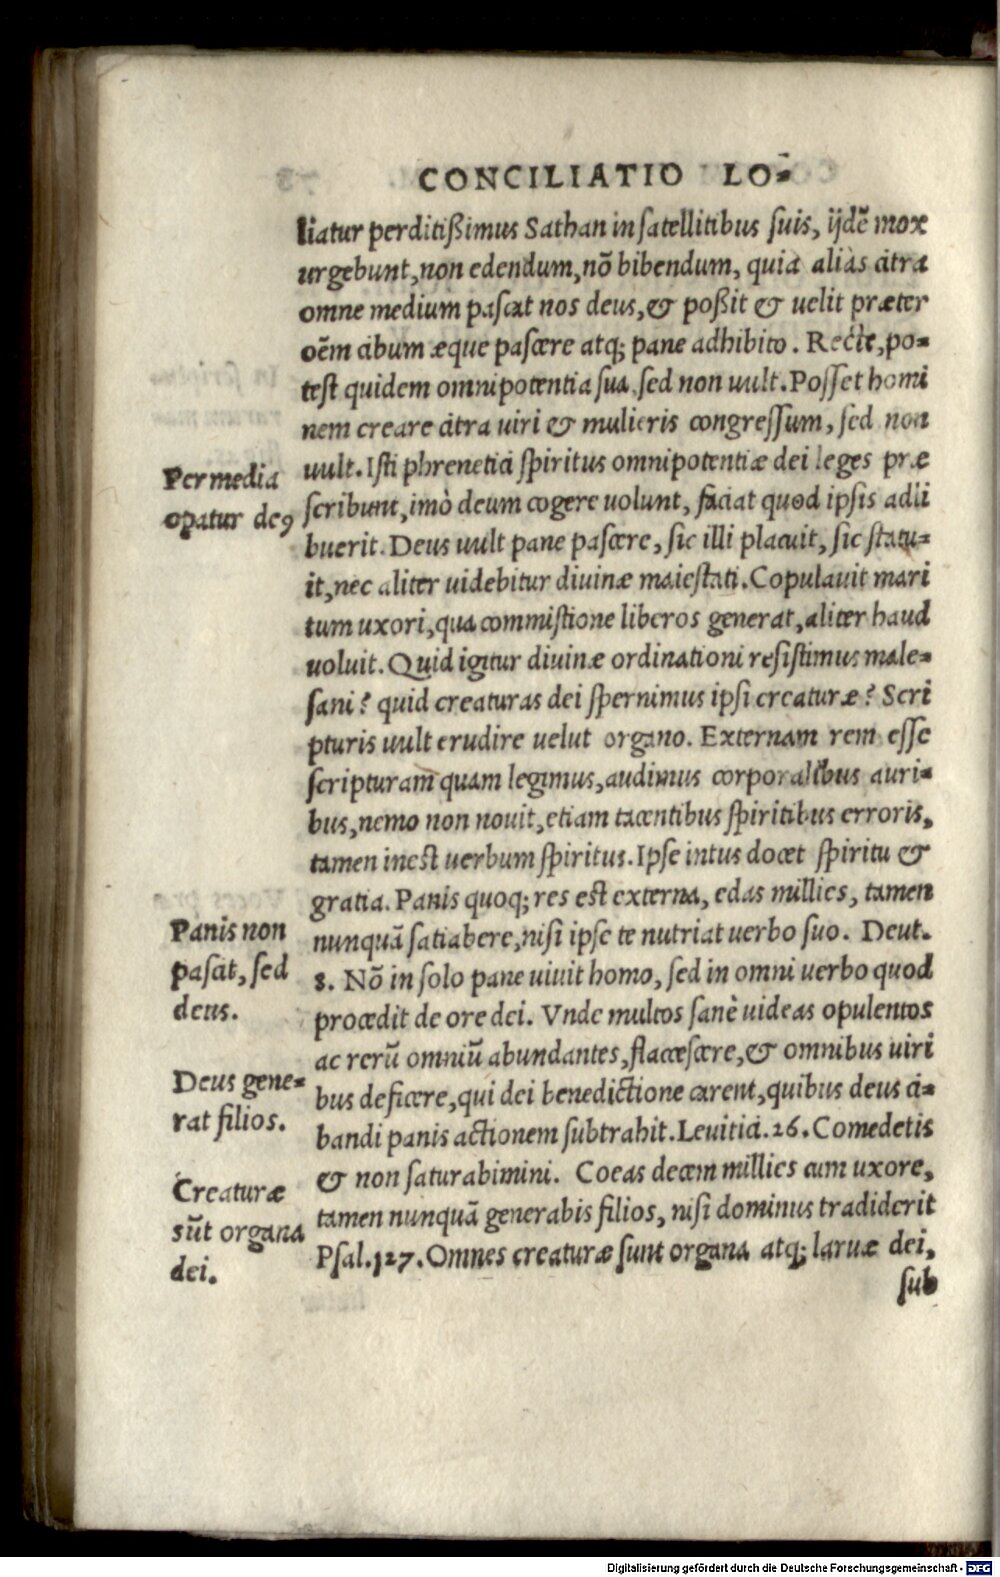 CONCILIATIO LO-
liatur perditißimus Sathan in satellitibus suis, ijdē mox
urgebunt, non edendum, nō bibendum, quia aliàs citra
omne medium pascat nos deus, & poßit & uelit præter
oēm cibum æque pascere atq; pane adhibito. Recte, po-
test quidem omnipotentia sua, sed non uult. Posset homi
nem creare citra uiri & mulieris congressum, sed non
uult. Isti phrenetici spiritus omnipotentiæ dei leges præ
scribunt, imò deum cogere uolunt, faciat quod ipsis adli
buerit. Deus uult pane pascere, sic illi placuit, sic statu-
it, nec aliter uidebitur diuinæ maiestati. Copulauit mari
tum uxori, qua commistione liberos generat, aliter haud
uoluit. Quid igitur diuinæ ordinationi resistimus male-
sani? quid creaturas dei spernimus ipsi creaturæ? Scri
pturis uult erudire uelut organo. Externam rem esse
scripturam quam legimus, audimus corporalibus auri-
bus, nemo non nouit, etiam tacentibus spiritibus erroris,
tamen inest uerbum spiritus. Ipse intus docet spiritu &
gratia. Panis quoq; res est externa, edas millies, tamen
nunquā satiabere, nisi ipse te nutriat uerbo suo. Deut.
8. Nō in solo pane uiuit homo, sed in omni uerbo quod
procedit de ore dei. Vnde multos sanè uideas opulentos
ac rerū omniū abundantes, flaccescere, & omnibus uiri
bus deficere, qui dei benedictione carent, quibus deus ci-
bandi panis actionem subtrahit. Leuitici. 26. Comedetis
& non saturabimini. Coeas decem millies cum uxore,
tamen nunquā generabis filios, nisi dominus tradiderit
Psal. 127. Omnes creaturæ sunt organa atq; laruæ dei,
sub
Per media
opatur deꝰ
Panis non
pascit, sed
deus.
Deus gene-
rat filios.
Creaturæ
sūt organa
dei.
Digitalisierung gefördert durch die Deutsche Forschungsgemeinschaft - DFG